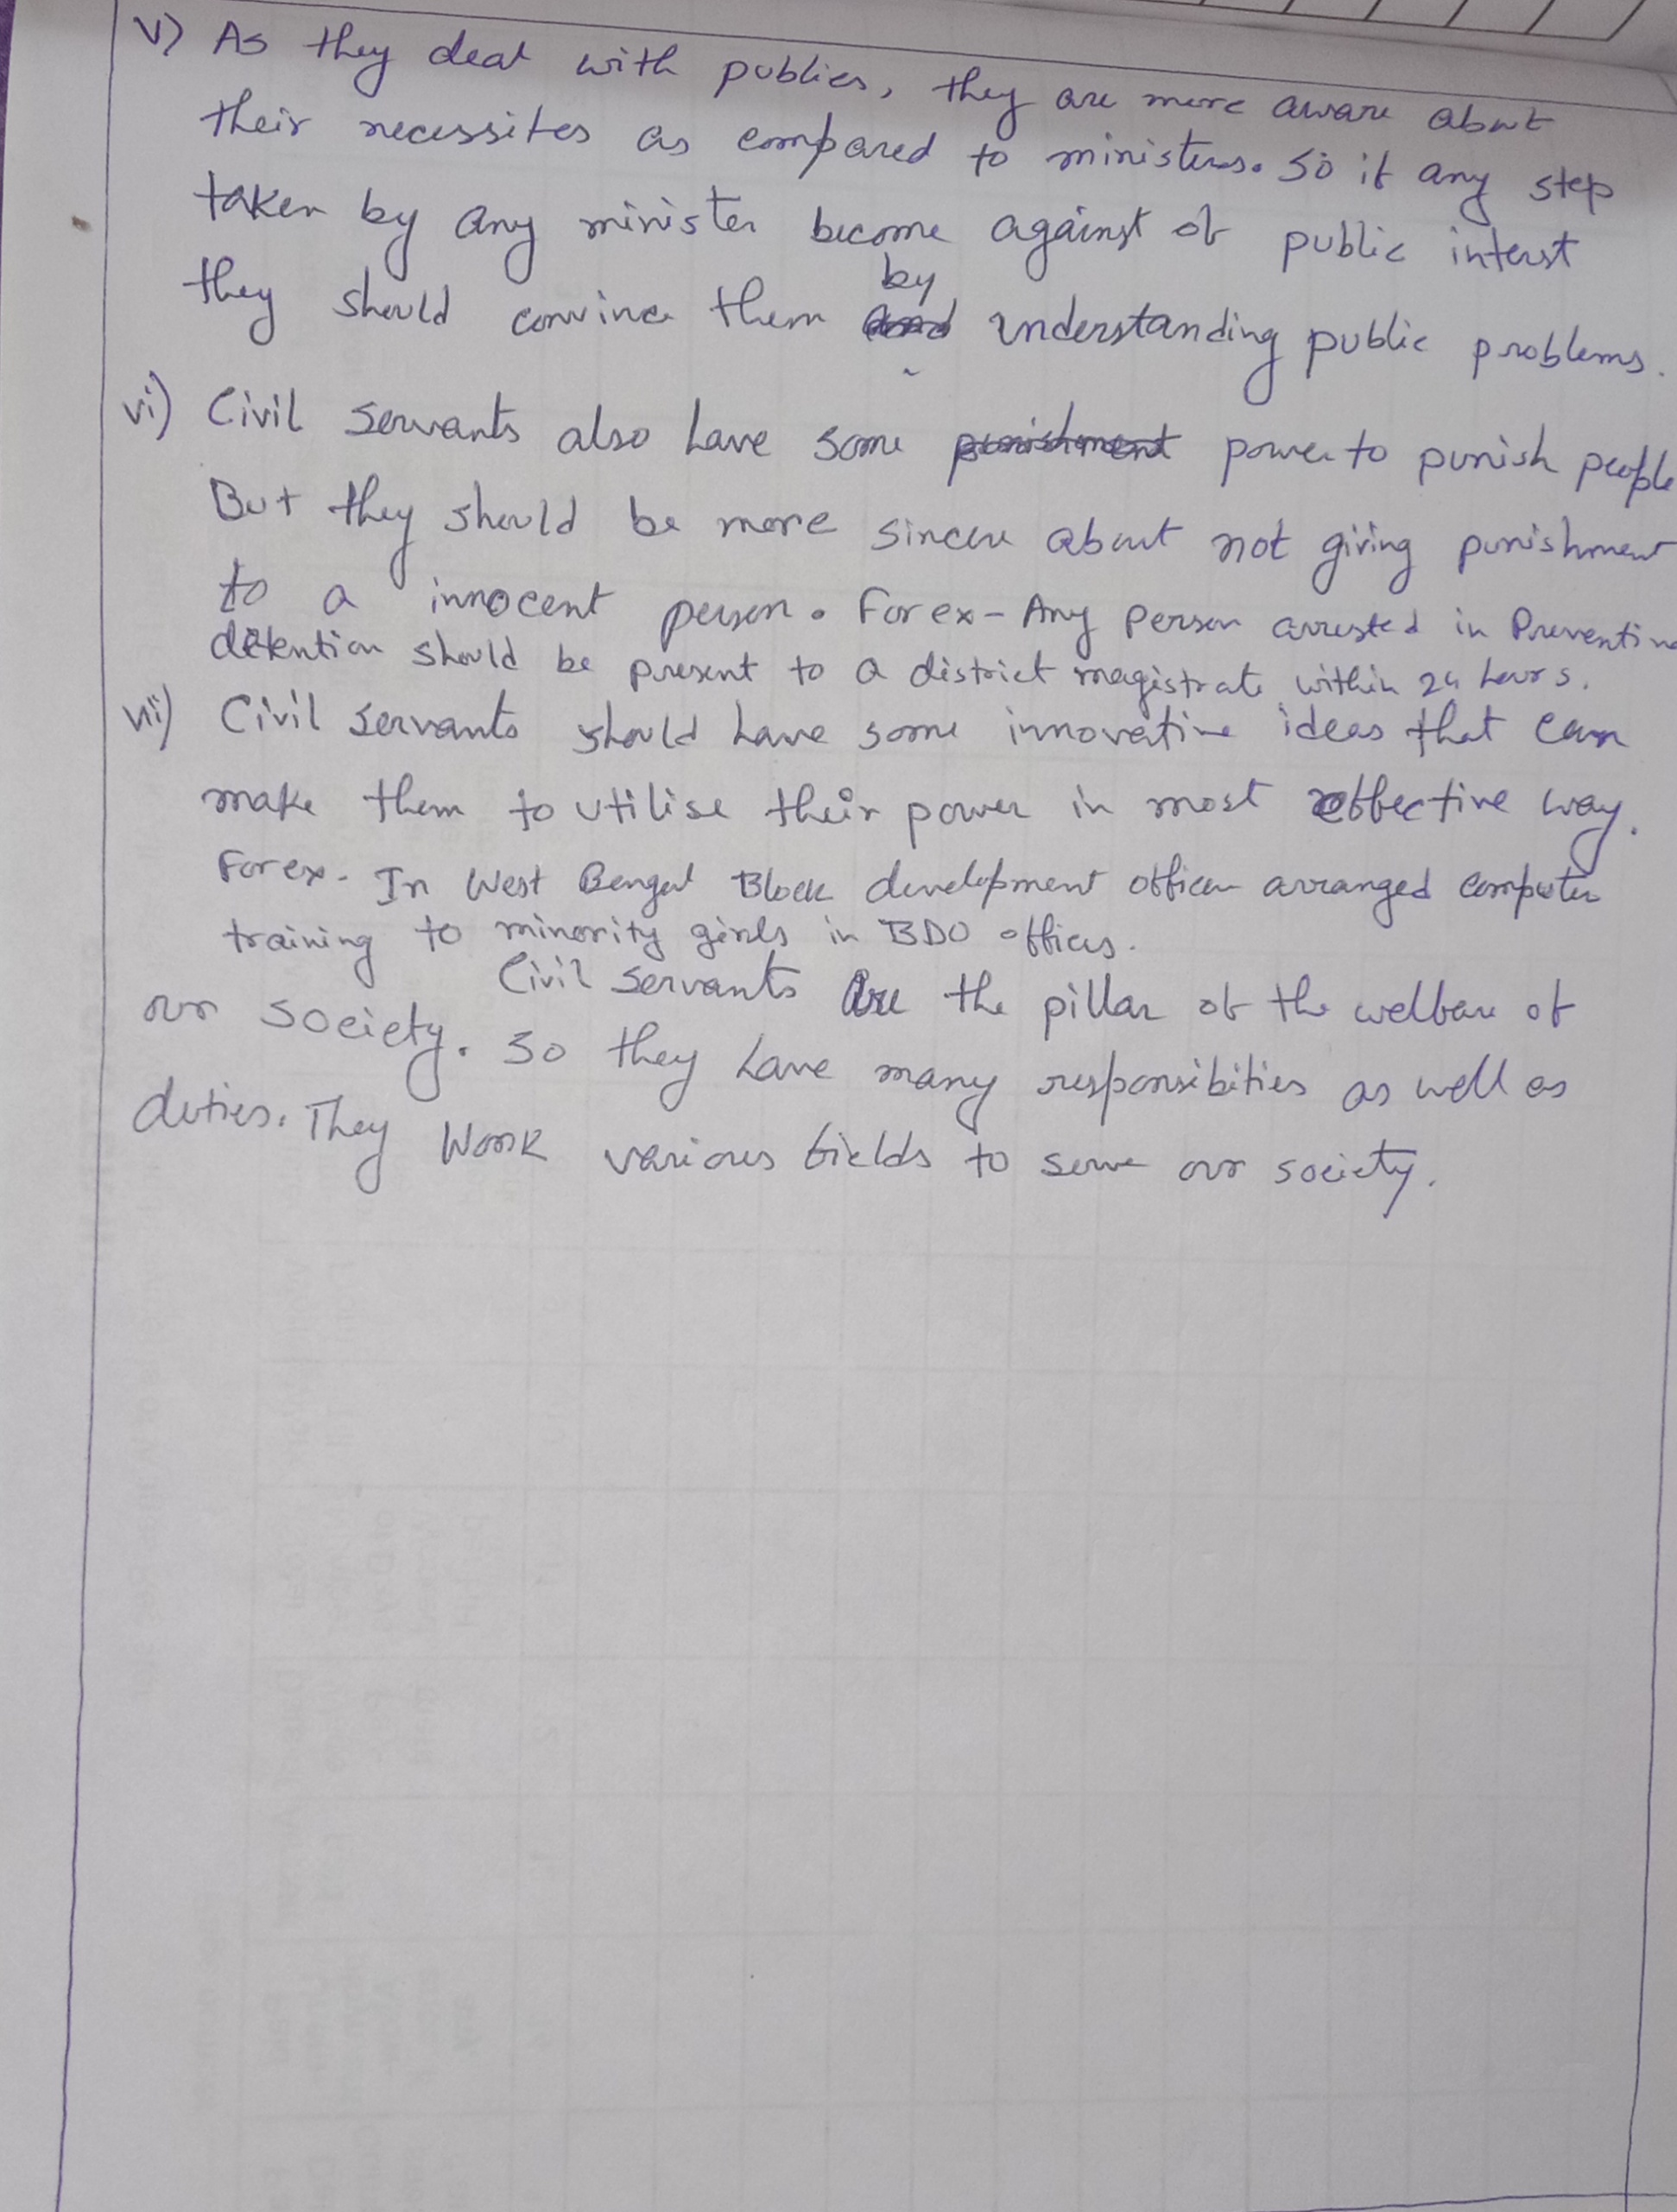 v) As they deal with publics, they are more aware about
their necessites as compared to ministers. So if any step
taken by any minister become against of public interst
they should convince them by understanding public problems.
vi) Civil servants also have some punishment power to punish people
But they should be more sincere about not giving punishment
to a innocent person. For ex- Any person arrested in Preventive
detention should be present to a district magistrate within 24 hours.
vii) Civil servants should have some innovative ideas that can
make them to utilise their power in most effective way.
For ex- In West Bengal Block development officer arranged computer
training to minority girls in BDO offices.
Civil servants are the pillar of the welfare of
our society. So they have many responsibities as well as
duties. They work various fields to serve our society.